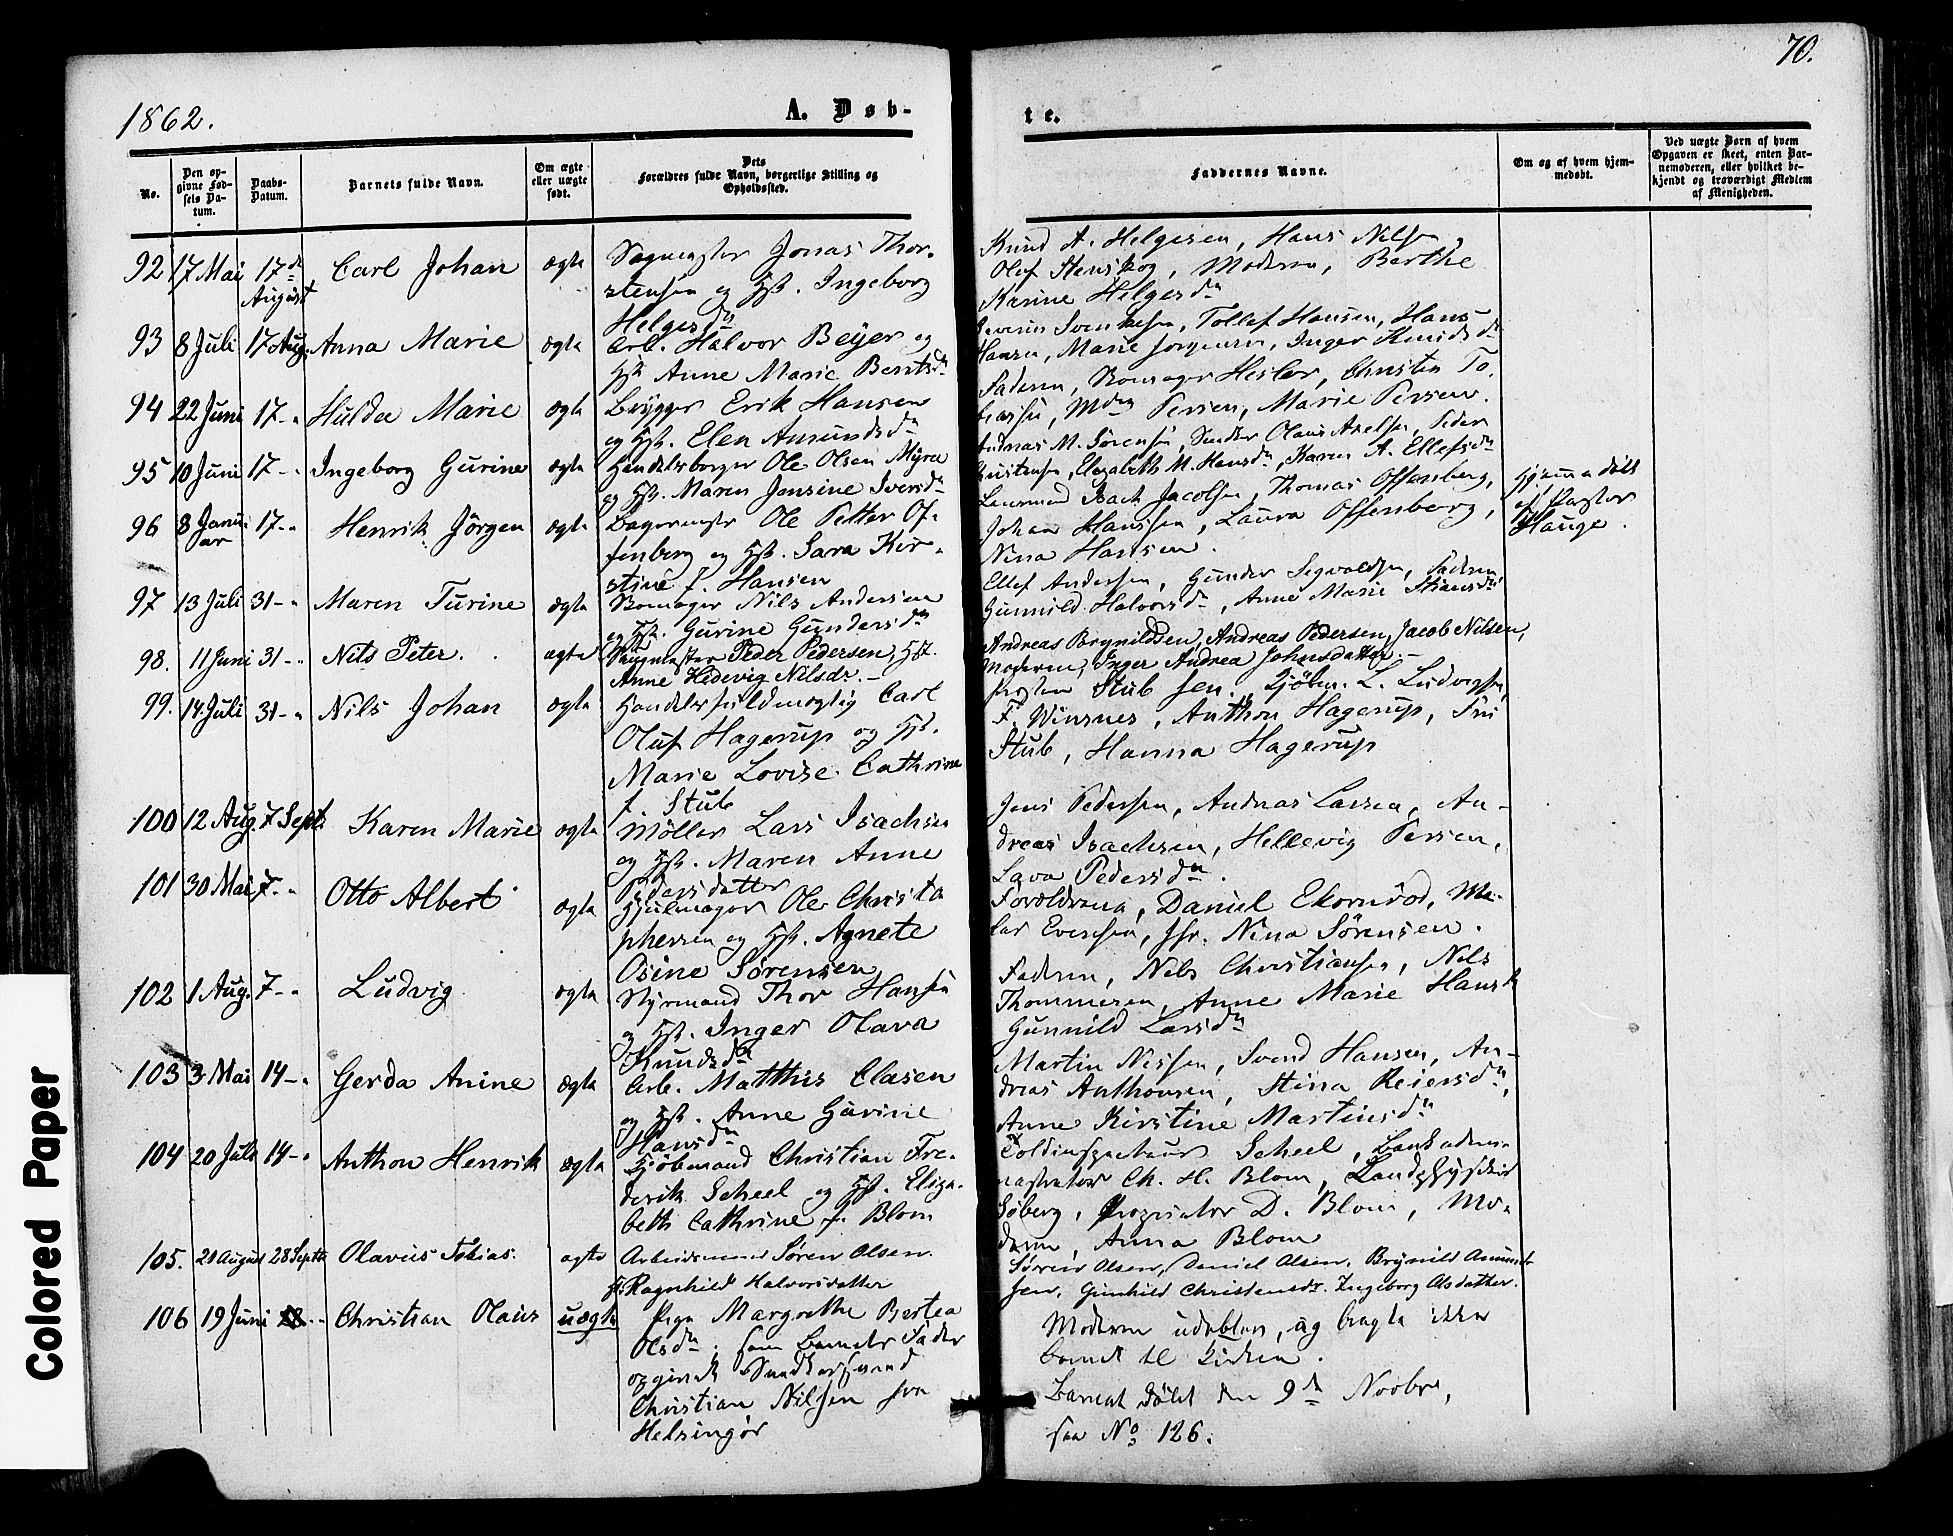 70.
1862.
A. Døb-
te.
No.
Den op-
givne Fød-
sels Da-
tum.
Daabs-
Datum.
Barnets fulde Navn.
Om ægte
eller uægte
født.
Dets
Forældres fulde Navn, borgerlige Stilling og
Opholdssted.
Faddernes Navne.
Om og af hvem hjem-
medøbt.
Ved uægte Børn af hvem
Opgaven er skeet, enten Bar-
nemoderen, eller hvilket be-
kjendt og troværdigt Medlem
af Menigheden.
92 17 Mai 17de August Carl Johan ægte
Jonas Thor-
stensen og Hst. Ingeborg
Helgesdn
Knud A. Helgesen, Hans Nilsen,
Olef Stenskog, Moderen, Berthe
Karine Helgesdn
93 8 Juli 17 Aug. Anna Marie ægte
Arb. Halvor Beyer og
Hst. Anne Marie Berntsdn
Severin Svenkesen, Tollef Hansen, Hans
Hansen, Marie Jörgensen, Inger Knudsdn
94 22 Juni 17-" Hulda Marie ægte
Brygger Erik Hansen
og Hst. Elen Amundsdn
Faderen, Bomager Hesler, Christen To-
biassen, Mdm Persen, Marie Persen.
95 10 Juni 17-" Ingeborg Gurine ægte
Handelsborger Ole Olsen Myra
og Hst. Maren Jensine Iversdn
Andreas M. Sörensen, Olaus Axelsen, Peder
Christensen, Elizabeth M. Hansdn, Karen A. Ellefsdn
96 8 Januar 17-" Henrik Jörgen ægte
Bagermester Ole Petter Of-
fenberg og Hst. Sara Kir-
stine f. Hansen
Lensmand Isach Jacobsen, Thomas Offenberg,
Johan Hanssen, Laura Offenberg,
Nina Hansen.
Hjemmedöbt
af Pastor
Hauge.
97 13 Juli 31-" Maren Turine ægte
Bomager Nils Andersen
og Hst. Gurine Gundersdn
Ellef Andersen, Gunder Sigvaldsen, Faderen
Gunnild Halvorsdn, Anne Marie Stiansdn
98. 11 Juni 31-" Nils Peter. ægte
Peder Pedersen, Hst.
Anne Hedevig Nilsdr.-
Andreas Brynildsen, Andreas Pedersen, Jacob Nilsen,
Moderen, Inger Andrea Johnsdatter.-
99. 14 Juli 31-" Nils Johan ægte
Handelsfuldmægtig Carl
Oluf Hagerup og Hst.
Marie Lovise Cathrine
f. Stub
Provsten Stub sen., Kjöbm. L. Ludvigsen,
F. Winsnes, Anthon Hagerup, Fru
Stub, Hanna Hagerup
100 12 Aug. 7 Sept. Karen Marie ægte
Möller Lars Isachsen
og Hst. Maren Anne
Pedersdatter
Jens Pedersen, Andreas Larsen, An-
dreas Isachsen, Hellevig Persen,
Lava Pedersdn.
101 30 Mai 7-" Otto Albert ægte
Hjulmager Ole Christo
phersen og Hst. Agnete
Osine Sörensen
Forældrene, Daniel Ekornröd, Ma-
ler Evensen, Jfr. Nina Sörensen.
102 1 Aug. 7-" Ludvig ægte
Styrmand Thor Hansen
og Hst. Inger Olava
Knudsdn
Faderen, Nils Christiansen, Nils
Thommesen, Anne Marie Hansdn
Gunnild Larsdn
103 3 Mai 14-" Gerda Anine ægte
Arb. Matthis Clasen
og Hst. Anne Gurine
Hansdn
Martin Nissen, Svend Hansen, An-
dreas Anthonsen, Stina Reiersdn,
Anne Kirstine Martinsdn
104 20 Juli 14-" Anthon Henrik ægte
Kjöbmand Christian Fre-
derik Scheel og Hst. Eliza-
beth Cathrine f. Blom
Toldinspecteur Scheel, Bankadmi-
nistrator Ch. H. Blom, Landphysicus
Söberg, Proprietær D. Blom, Mo-
deren, Anna Blom
105. 21 August 28 Septbr Olavus Tobias. ægte
Arbeidsmand Søren Olsen.
Hst. Ragnhild Halvorsdatter
Sørein Olsen, Daniel Olsen, Brynild Amund-
sen, Gunhild Christensdr. Ingeborg Olsdatter.
106 19 Juni 28-" Christian Olaus uægte
Pige Margrethe Bertea
Olsdn; som Barnets Fader
opgivet
Christian Nilssen fra
Helsingør
Moderen udeblev, og bragte ikke
Barnet til Kirken.
Barnet döbt den 9de Novbr,
see No 126.
Colored Paper